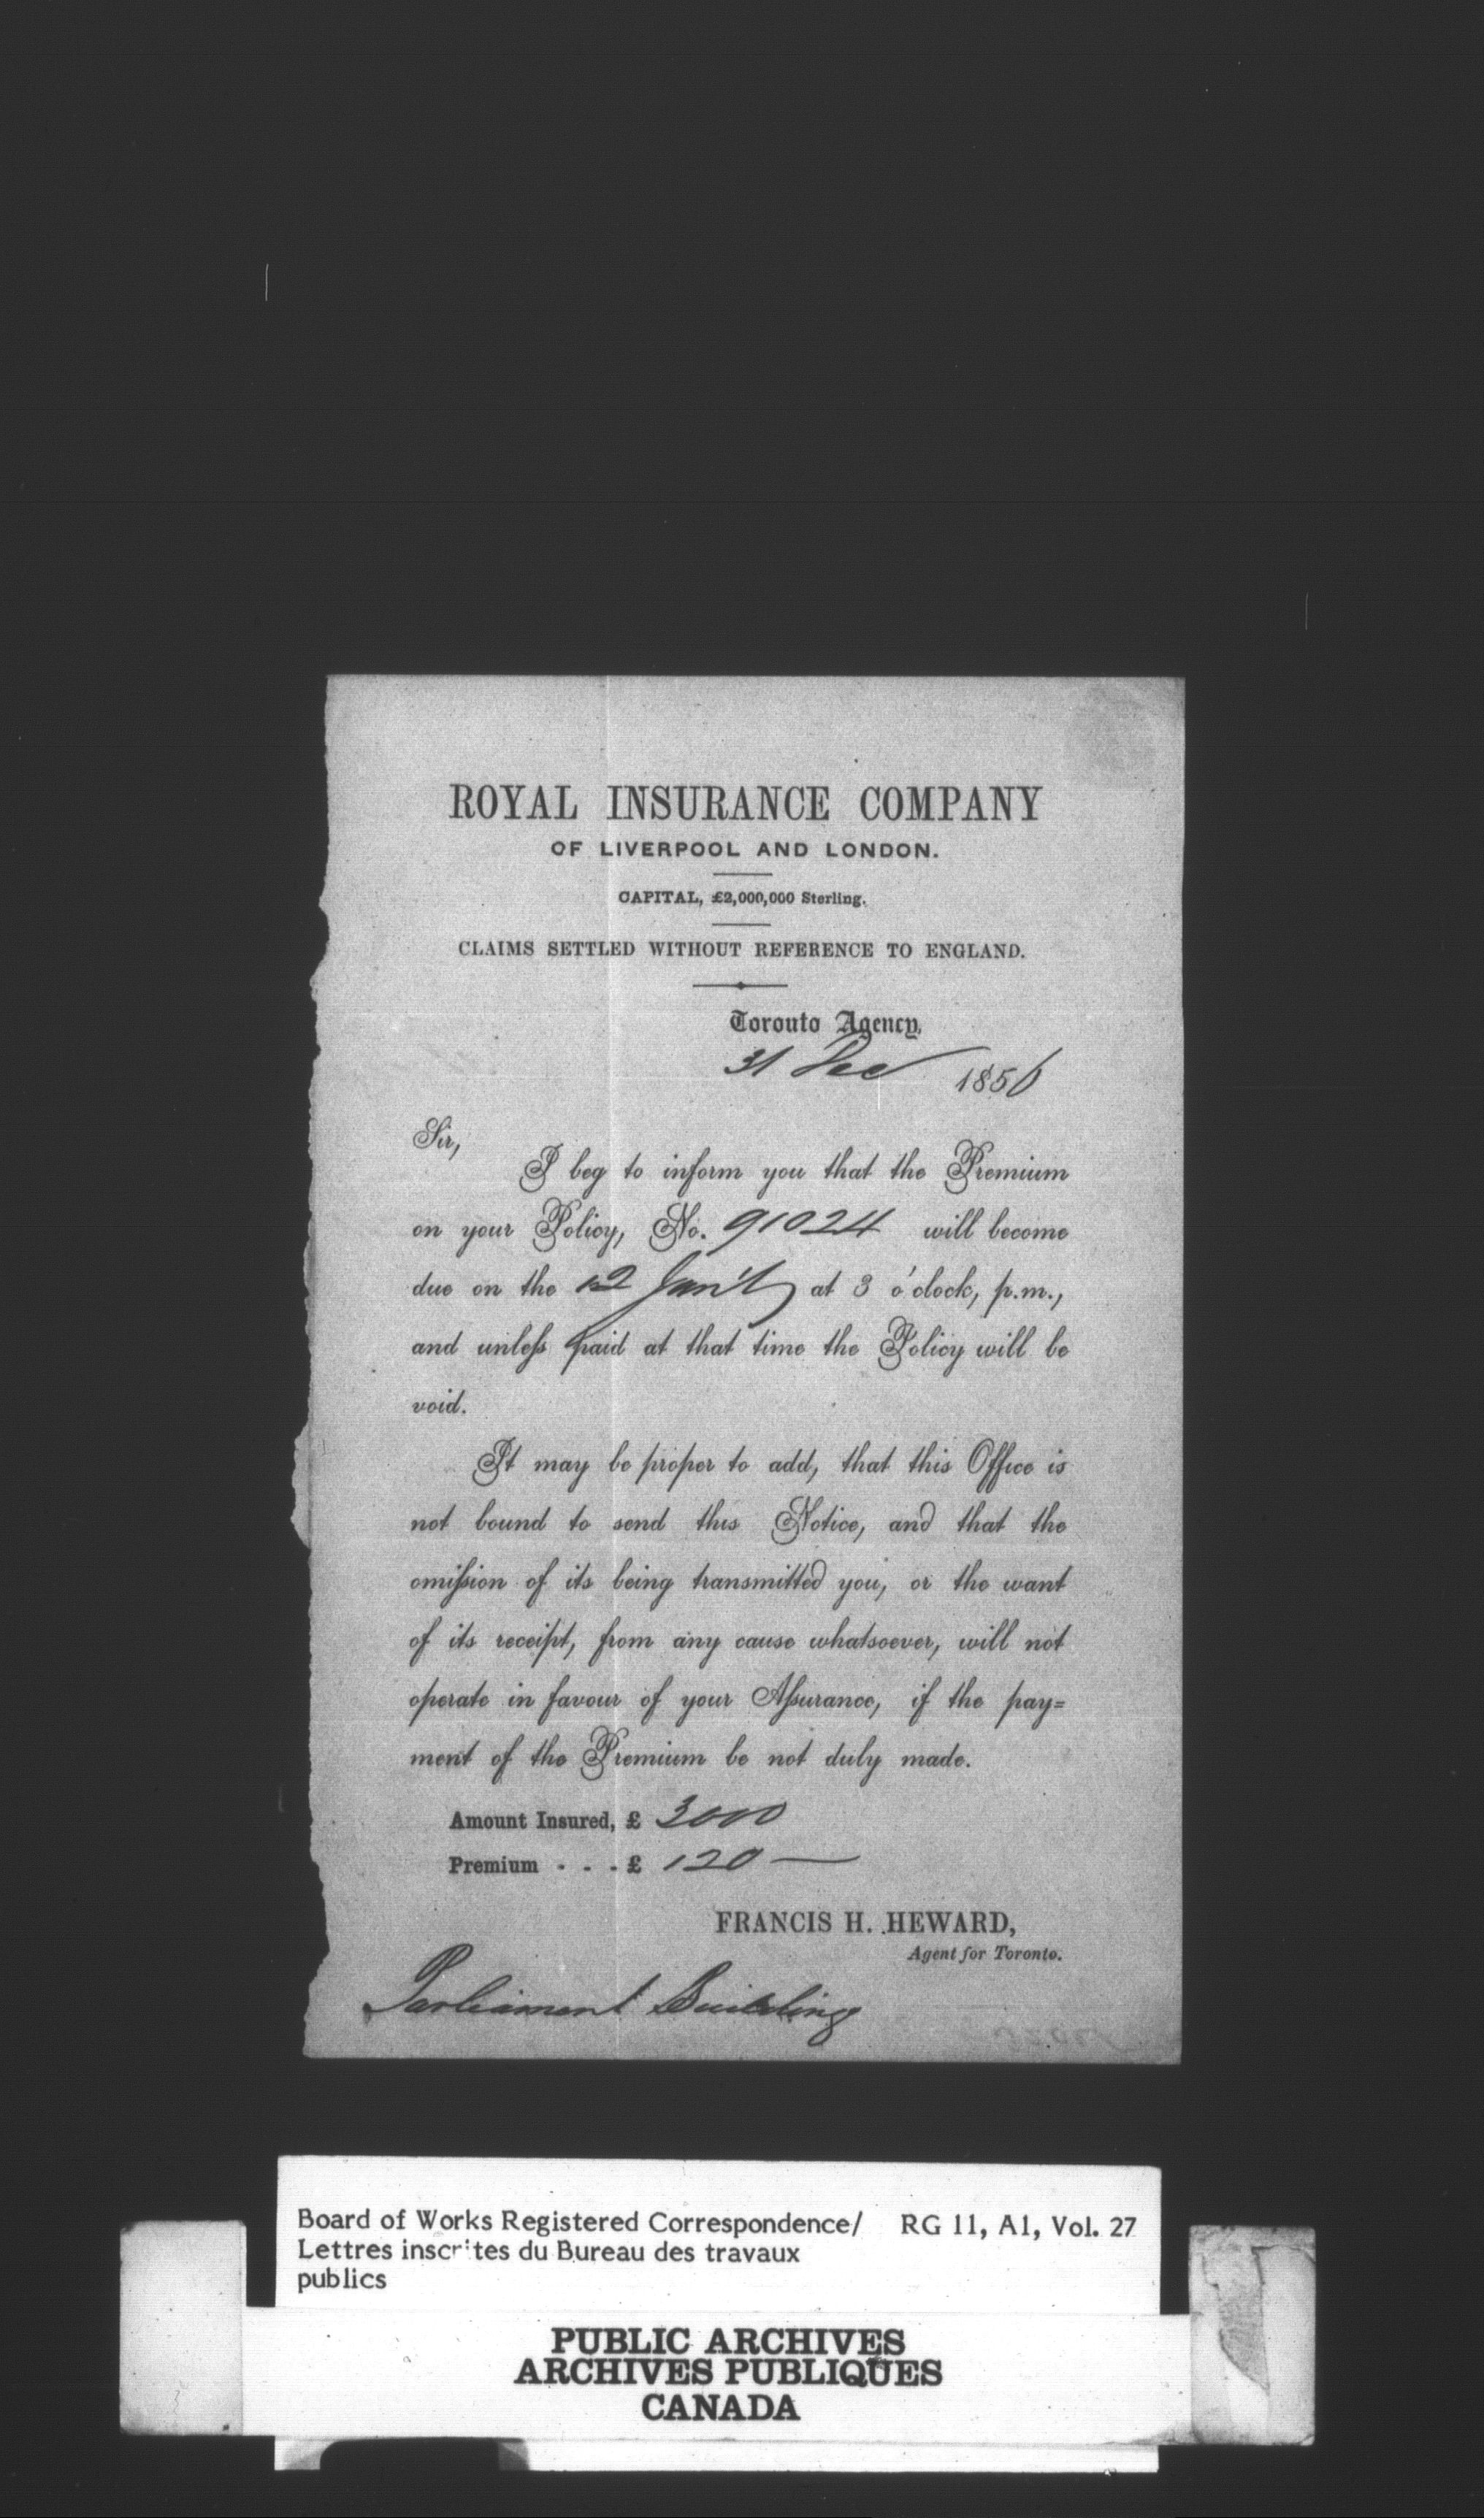 ROYAL INSURANCE COMPANY
OF LIVERPOOL AND LONDON.
CAPITAL, £2,000,000 Sterling.
CLAIMS SETTLED WITHOUT REFERENCE TO ENGLAND.
Toronto Agency,
31 Dec 1856
Sir,
I beg to inform you that the Premium
on your Policy, No. 91024 will become
due on the 12 Jan'y at 3 o'clock, p.m.,
and unless paid at that time the Policy will be
void.
It may be proper to add, that this Office is
not bound to send this Notice, and that the
omission of its being transmitted you, or the want
of its receipt, from any cause whatsoever, will not
operate in favour of your Assurance, if the pay=
ment of the Premium be not duly made.
Amount Insured, £ 3000
Premium - - - £ 120 —
FRANCIS H. HEWARD,
Agent for Toronto.
Parliament Building
Board of Works Registered Correspondence/ RG 11, A1, Vol. 27
Lettres inscrites du Bureau des travaux
publics
PUBLIC ARCHIVES
ARCHIVES PUBLIQUES
CANADA